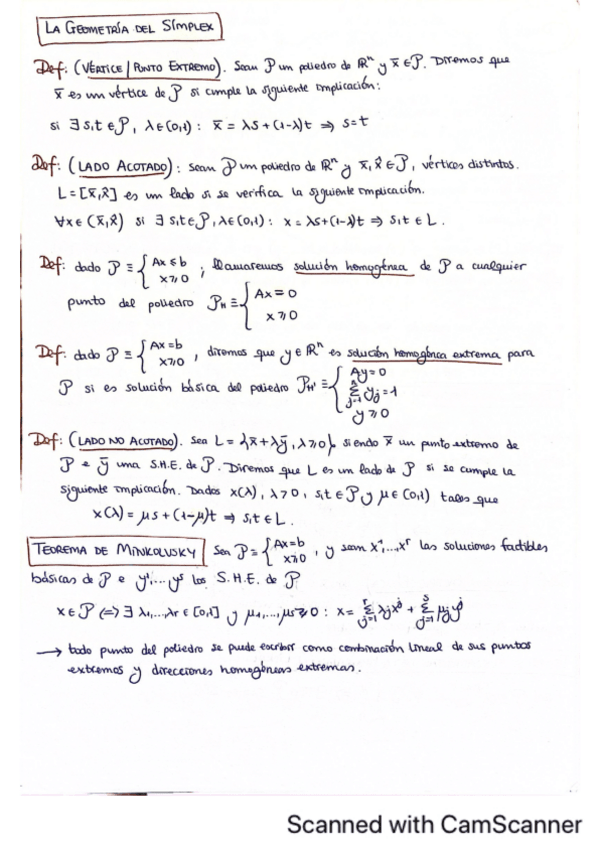 LA GEOMETRÍA DEL SÍMPLEX
Def: (VÉRTICE / PUNTO EXTREMO). Sean P un poliedro de ℝⁿ y x̄ ∈ P. Diremos que
x̄ es un vértice de P si cumple la siguiente implicación:
si ∃ s,t ∈ P, λ ∈ (0,1) : x̄ = λs + (1-λ)t ⇒ s = t
Def: (LADO ACOTADO) : sean P un poliedro de ℝⁿ y x̄, x̂ ∈ P, vértices distintos.
L = [x̄, x̂] es un lado si se verifica la siguiente implicación.
∀x ∈ (x̄, x̂) si ∃ s,t ∈ P, λ ∈ (0,1) : x = λs + (1-λ)t ⇒ s,t ∈ L.
Def: dado P ≡ { Ax ≤ b, x ≥ 0 ; llamaremos solución homogénea de P a cualquier
punto del poliedro P_H ≡ { Ax = 0, x ≥ 0
Def: dado P ≡ { Ax = b, x ≥ 0 , diremos que y ∈ ℝⁿ es solución homogénea extrema para
P si es solución básica del poliedro P_H' ≡ { Ay = 0, Σ_{j=1}^{n} y_j = 1, y ≥ 0
Def: (LADO NO ACOTADO). Sea L = {x̄ + λȳ, λ ≥ 0} siendo x̄ un punto extremo de
P e ȳ una S.H.E. de P. Diremos que L es un lado de P si se cumple la
siguiente implicación. Dados x(λ), λ > 0, s,t ∈ P y μ ∈ (0,1) tales que
x(λ) = μs + (1-μ)t ⇒ s,t ∈ L.
TEOREMA DE MINKOLUSKY Sea P = { Ax = b, x ≥ 0 , y sean x¹,...,xʳ las soluciones factibles
básicas de P e y¹,... yˢ las S.H.E. de P
x ∈ P ⇔ ∃ λ₁,...,λr ∈ [0,1] y μ₁,...,μs ≥ 0 : x = Σ_{j=1}^{r} λjxʲ + Σ_{j=1}^{s} μjyʲ
→ todo punto del poliedro se puede escribir como combinación lineal de sus puntos
extremos y direcciones homogéneas extremas.
Scanned with CamScanner